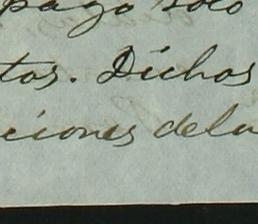 pago solo
tos. Dichos
ciones de la